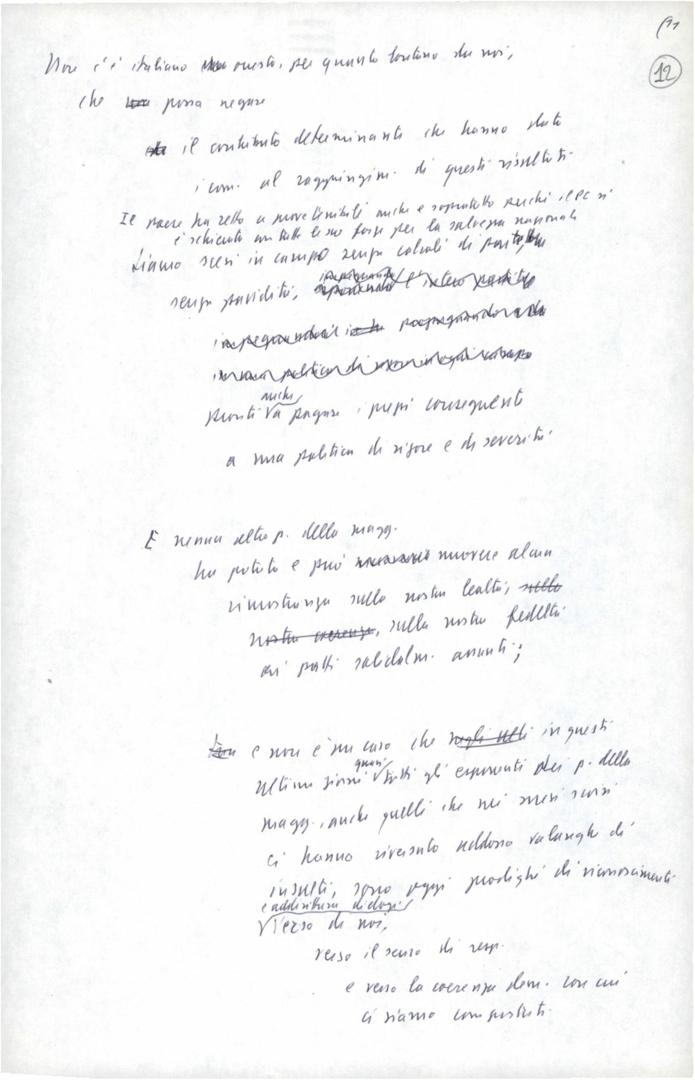 12
Non c'è italiano onesto, per quanto lontano da noi,
che possa negare
il contributo determinante che hanno dato
i com. al raggiungim. di questi risultati.
Il paese ha retto a prove terribili anche e soprattutto perché il PC si
è schierato con tutte le sue forze per la salvezza nazionale
Siamo scesi in campo senza calcoli di partito,
senza pavidità,
anche
pronti a pagare i prezzi conseguenti
a una politica di rigore e di severità
E nessun altro p. della magg.
ha potuto e può muovere alcuna
rimostranza sulla nostra lealtà, sulla
nostra coerenza, sulla nostra fedeltà
ai patti solidalm. assunti;
e non è un caso che negli ulti in questi
quasi
ultimi giorni tutti gli esponenti dei p. della
magg., anche quelli che nei mesi scorsi
ci hanno riversato addosso valanghe di
insulti, sono oggi prodighi di riconoscimenti
e addirittura di elogi
verso di noi,
verso il senso di resp.
e verso la coerenza dem. con cui
ci siamo comportati.